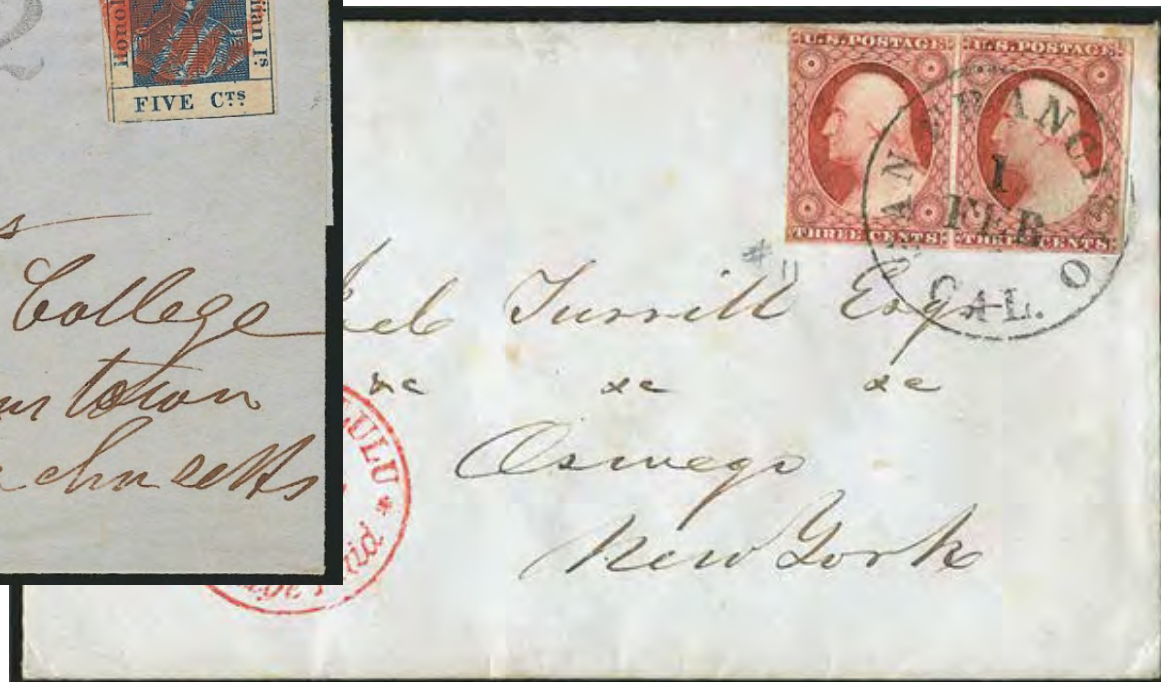 Honol
ian Is.
FIVE CTS
College
town
chusetts
U.S. POSTAGE U.S. POSTAGE
THREE CENTS THREE CENTS
SAN FRANCISCO
1
FEB
CAL.
# 11
Turrill Esqr
&c &c &c
Oswego
New York
LULU *
Paid